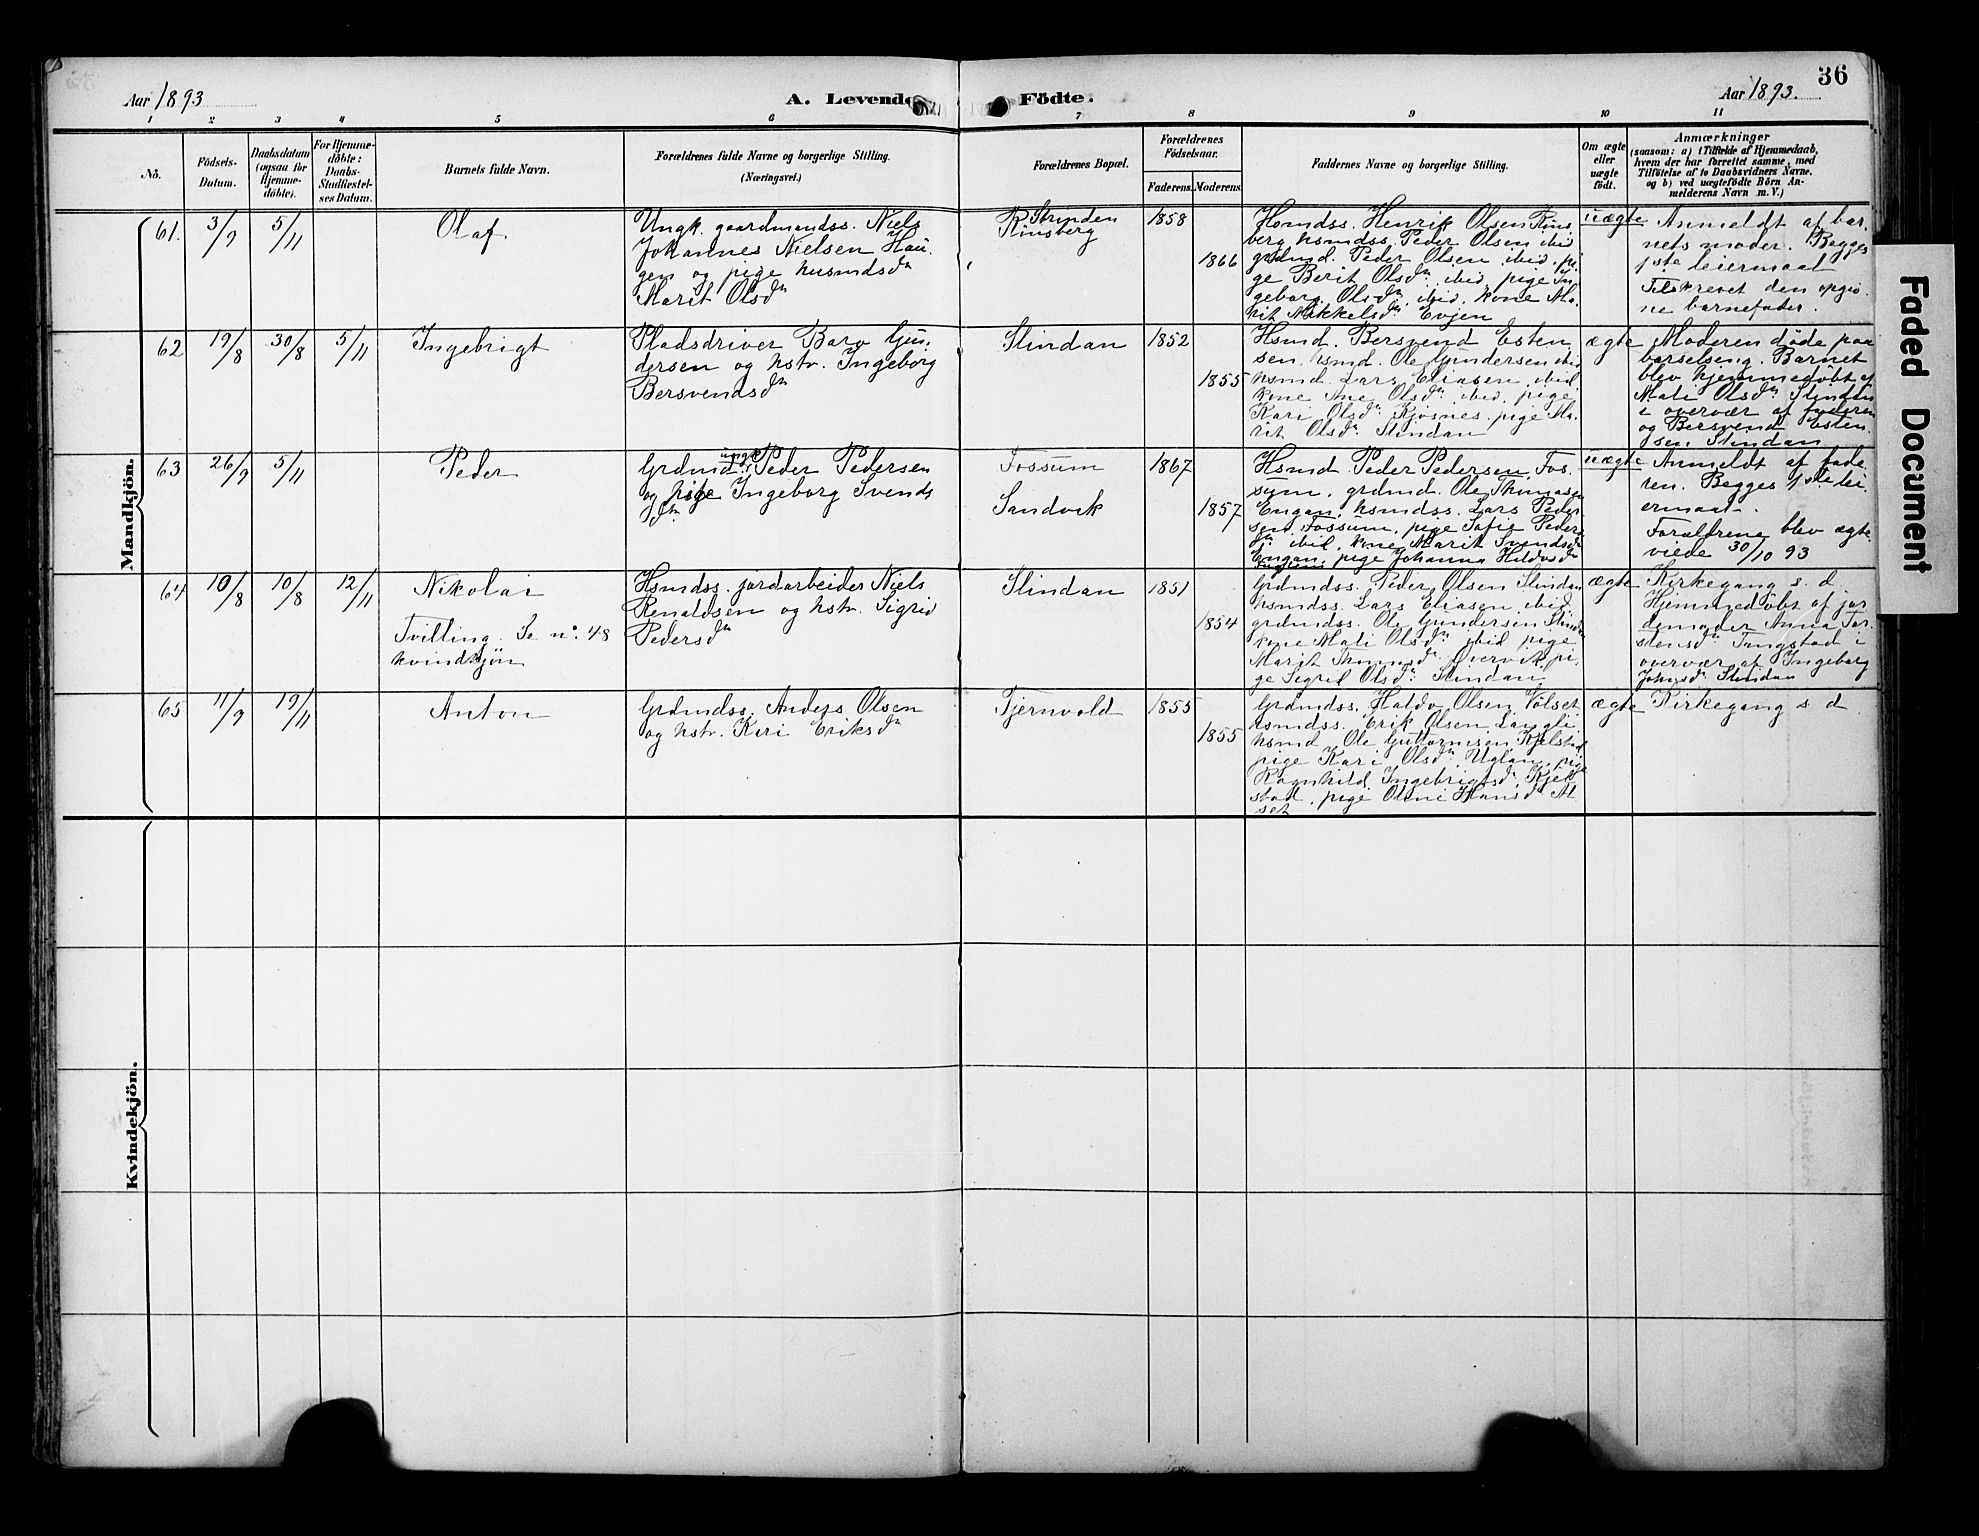 36
Aar 1893
A. Levende Födte.
Aar 1893.
1 2 3 4 5 6 7 8 9 10 11
No.
Födsels-
Datum.
Daabsdatum
(ogsaa for
Hjemme-
döbte).
For Hjemme-
döbte:
Daabs-
Stadfæstel-
ses Datum.
Barnets fulde Navn.
Forældrenes fulde Navne og borgerlige Stilling.
(Næringsvei.)
Forældrenes Bopæl.
Forældrenes
Födselsaar.
Faderens.
Moderens.
Faddernes Navne og borgerlige Stilling.
Om ægte
eller
uægte
födt.
Anmærkninger
(saasom: a) i Tilfælde af Hjemmedaab,
hvem der har forrettet samme, med
Tilföielse af to Daabsvidners Navne,
og b) ved uægtefödte Börn An-
melderens Navn m. V.)
Mandkjön.
61.
3/9
5/11
Olaf
Ungk. gaardmandss. Niels
Johannes Nielsen Hau-
gen og pige husmdsdn
Marit Olsdn
Strinden
Rinsberg
1858
1866
Hsmdss. Henrik Olsen Rins-
berg hsmdss. Peder Olsen ibid
grdmd. Peder Olsen ibid. pi-
ge Berit Olsdn ibid, pige In-
geborg Olsdn ibid. kone Ma-
rit Mikkelsdn Evjen
uægte
Anmeldt af bar-
nets moder. Begges
1ste leiermaal
Tilskrevet den opgiv-
ne barnefader.
62
19/8
30/8
5/11
Ingebrigt
Pladsdriver Baro Gun-
dersen og hstr. Ingeborg
Bersvendsdn
Slindan
1852
1855
Hsmd. Bersvend Esten
sen, hsmd. Ole Gundersen ibid
hsmd. Lars Eliasen, ibid.
kone Ane Olsdn ibid. pige
Kari Olsdn Kjøsnes. pige Ma-
rit Olsdn Slindan
ægte
Moderen døde paa
barselseng. Barnet
blev hjemmedøbt af
Mali Olsdn Slindan
i overvær af faderen
og Bersvend Esten
sen Slindan
63
26/9
5/11
Peder
ungk.
Grdmd. Peder Pedersen
og pige Ingeborg Svends
dn
Fossum
Sandvik
1867
1857
Hsmd. Peder Pedersen Fos-
sum, grdmd. Ole Thomasen
Engan, hsmdss. Lars Peder-
sen Fossum, pige Sofie Peders
dn ibid, kone Marit Svendsdn
Engan, pige Johanna Hildosdn
uægte
Anmeldt af fade-
ren. Begges 1ste lei-
ermaal.
Forældrene blev ægte-
viede 30/10 93
64
10/8
10/8
12/11
Nikolai
Tvilling. Se no. 48
kvindkjøn
Hsmdss. jordarbeider Niels
Renaldsen og hstr. Sigrid
Pedersdn
Slindan
1851
1854
Grdmdss. Peder Olsen Slindan
hsmdss. Lars Eliasen ibid
grdmdss. Ole Gundersen Slindan
kone Mali Olsdn ibid pige
Marit Thomasdn Overvik, pi-
ge Sigril Olsdn Slindan
ægte
Kirkegang s. d.
Hjemmedøbt af jor-
demoder Anna Tor-
stensdn Tangstad i
overvær af Ingeborg
Johnsdn Slindan
65
11/9
19/11
Anton
Grdmdss. Anders Olsen
og hstr. Kari Eriksdn
Tjernvold
1855
1855
Grdmdss. Haldo Olsen Volset
hsmdss. Erik Olsen Langli
hsmd Ole Guttormsen Kjelstad
pige Kari Olsdn Uglan, pige
Ragnhild Ingebrigtsdn Kjeld
stad, pige Oline Hansdn Al
set
ægte
Kirkegang s d.
Kvindekjön.
Faded Document